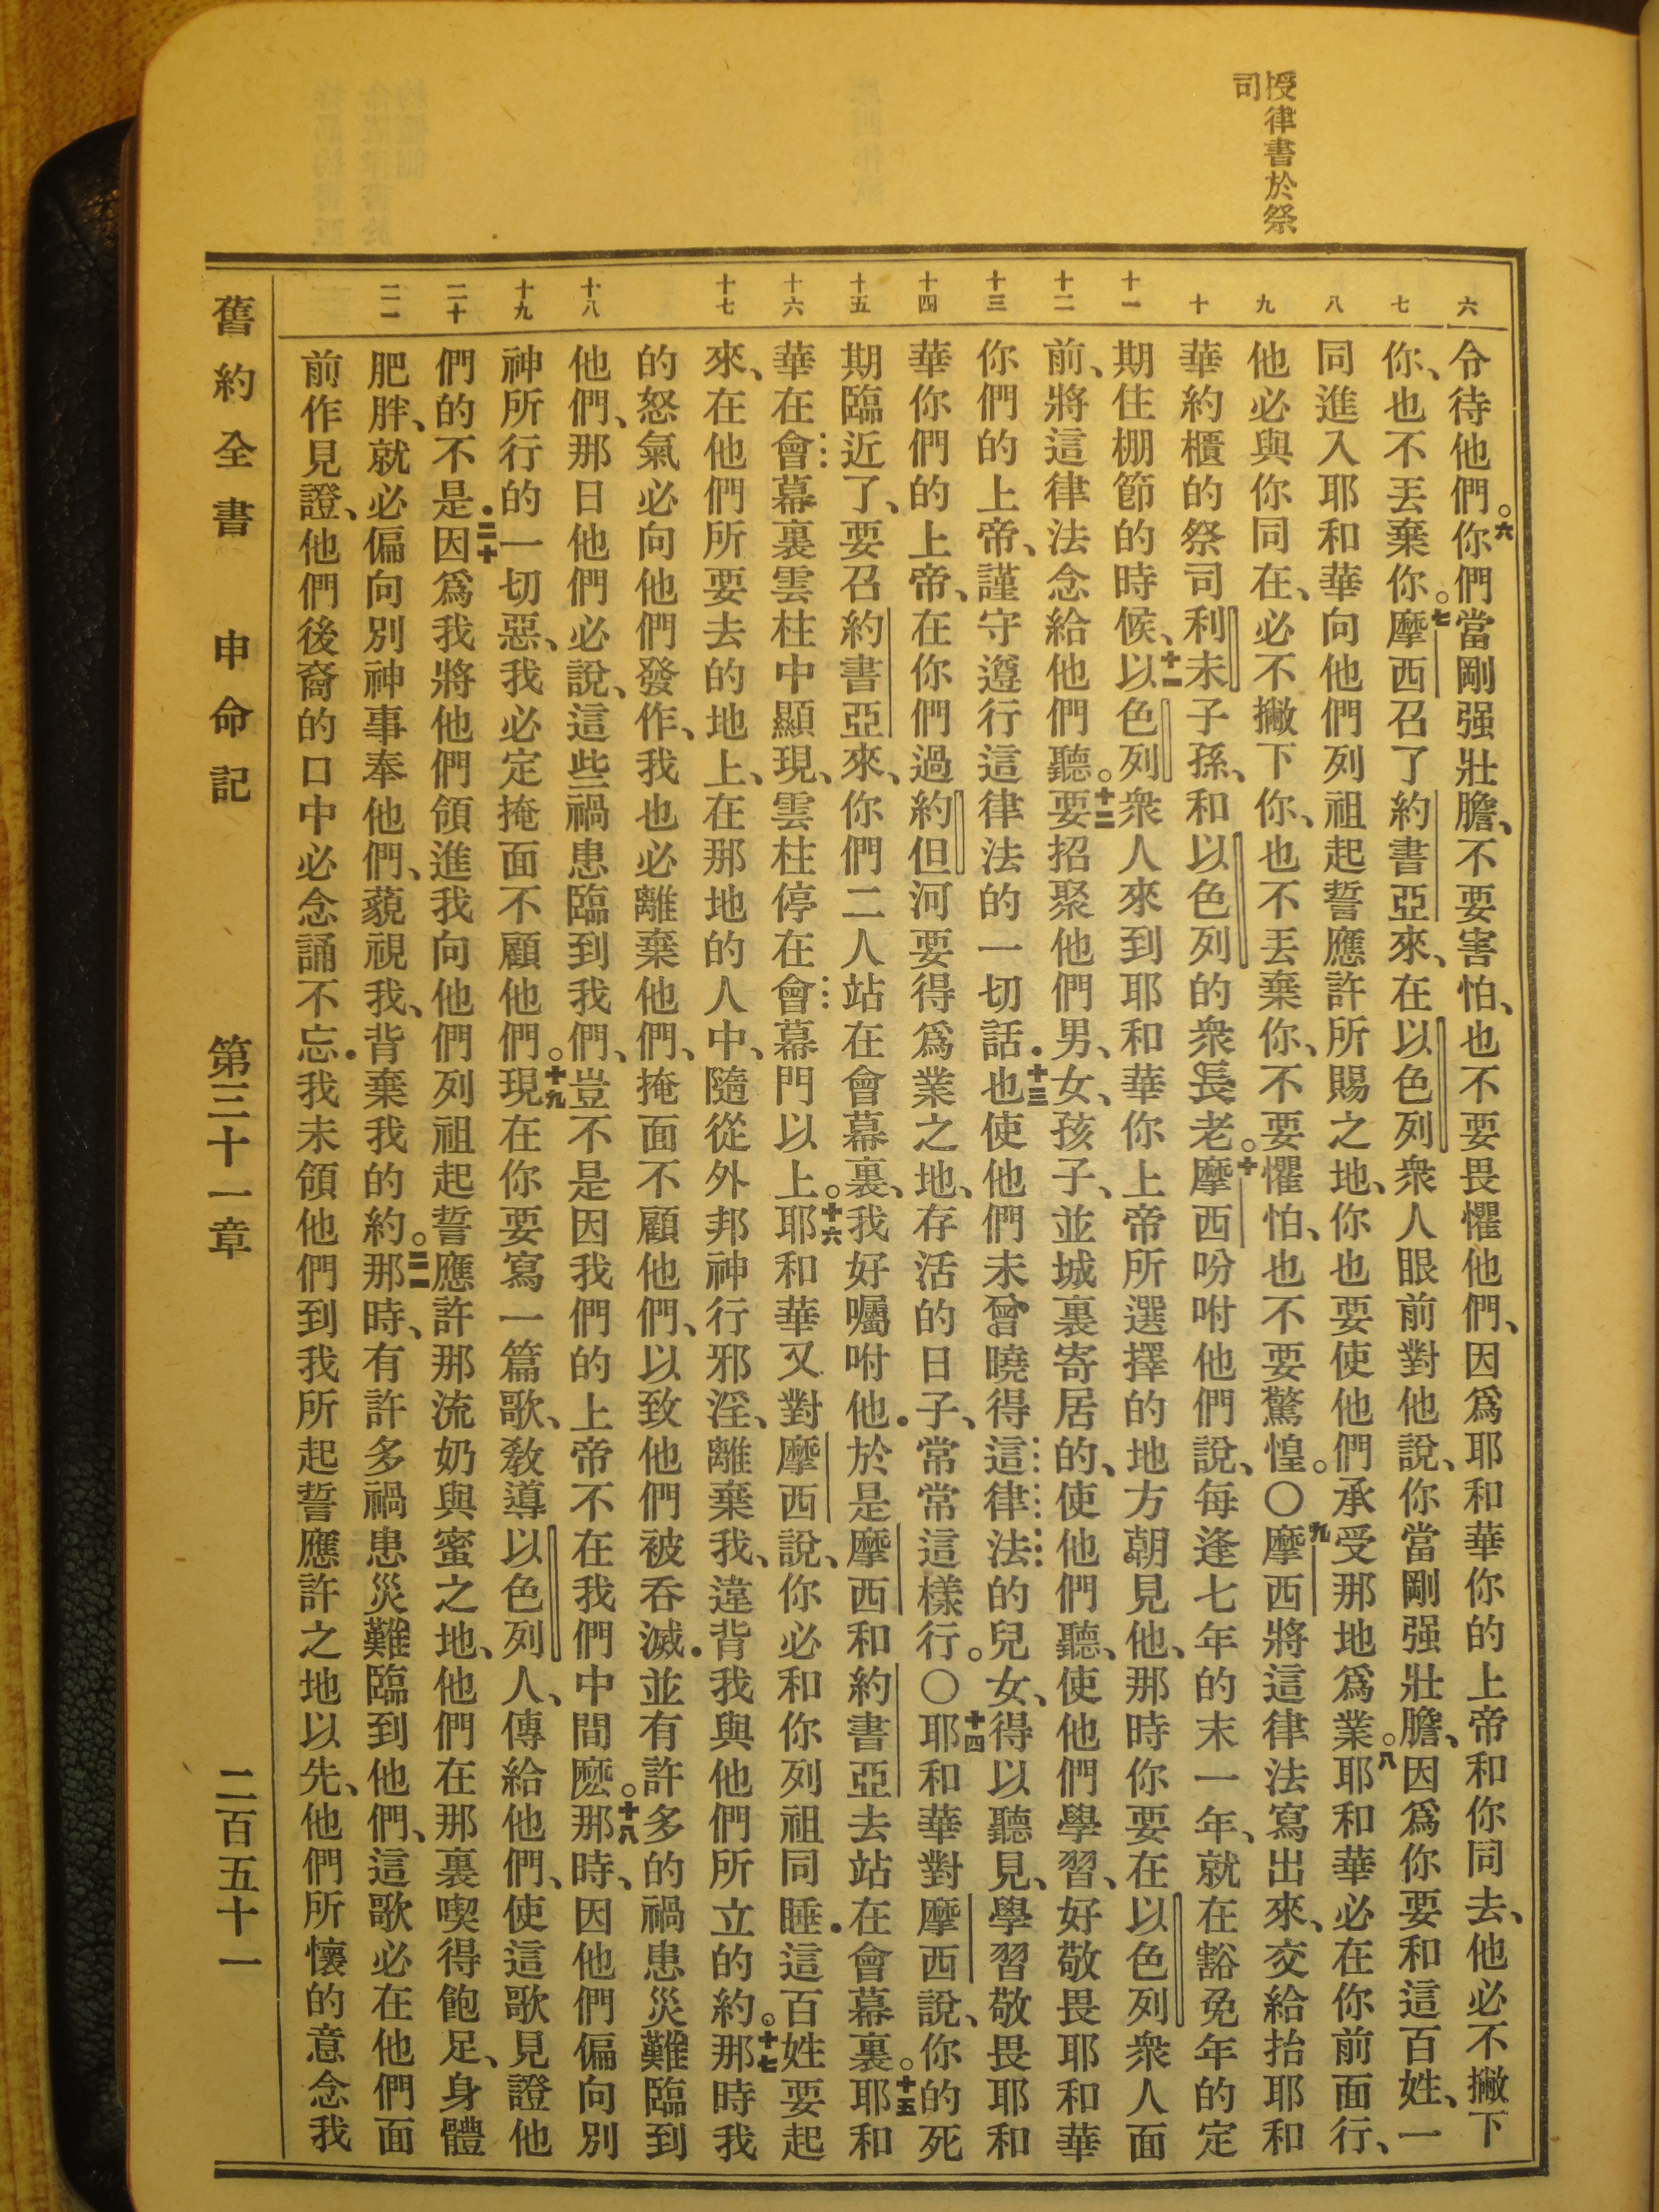 授律書於祭
司
六
七
八
九
十
十一
十二
十三
十四
十五
十六
十七
十八
十九
二十
二一
令待他們。六你們當剛强壯膽、不要害怕、也不要畏懼他們、因爲耶和華你的上帝和你同去、他必不撇下
你、也不丟棄你。七摩西召了約書亞來、在以色列衆人眼前對他說、你當剛强壯膽、因爲你要和這百姓、一
同進入耶和華向他們列祖起誓應許所賜之地、你也要使他們承受那地爲業。八耶和華必在你前面行、
他必與你同在、必不撇下你、也不丟棄你、不要懼怕、也不要驚惶。〇九摩西將這律法寫出來、交給抬耶和
華約櫃的祭司利未子孫、和以色列的衆長老。十摩西吩咐他們說、每逢七年的末一年、就在豁免年的定
期住棚節的時候、十一以色列衆人來到耶和華你上帝所選擇的地方朝見他、那時你要在以色列衆人面
前、將這律法念給他們聽。十二要招聚他們男、女、孩子、並城裏寄居的、使他們聽、使他們學習、好敬畏耶和華
你們的上帝、謹守遵行這律法的一切話.十三也使他們未曾曉得這律法的兒女、得以聽見、學習敬畏耶和
華你們的上帝、在你們過約但河要得爲業之地、存活的日子、常常這樣行。〇十四耶和華對摩西說、你的死
期臨近了、要召約書亞來、你們二人站在會幕裏、我好囑咐他.於是摩西和約書亞去站在會幕裏。十五耶和
華在會幕裏雲柱中顯現、雲柱停在會幕門以上。十六耶和華又對摩西說、你必和你列祖同睡.這百姓要起
來、在他們所要去的地上、在那地的人中、隨從外邦神行邪淫、離棄我、違背我與他們所立的約。十七那時我
的怒氣必向他們發作、我也必離棄他們、掩面不顧他們、以致他們被吞滅.並有許多的禍患災難臨到
他們、那日他們必說、這些禍患臨到我們、豈不是因我們的上帝不在我們中間麽。十八那時、因他們偏向別
神所行的一切惡、我必定掩面不顧他們。十九現在你要寫一篇歌、敎導以色列人、傳給他們、使這歌見證他
們的不是.二十因爲我將他們領進我向他們列祖起誓應許那流奶與蜜之地、他們在那裏喫得飽足、身體
肥胖、就必偏向別神事奉他們、藐視我、背棄我的約。二一那時、有許多禍患災難臨到他們、這歌必在他們面
前作見證、他們後裔的口中必念誦不忘.我未領他們到我所起誓應許之地以先、他們所懷的意念我
舊約全書　申命記　第三十一章　二百五十一